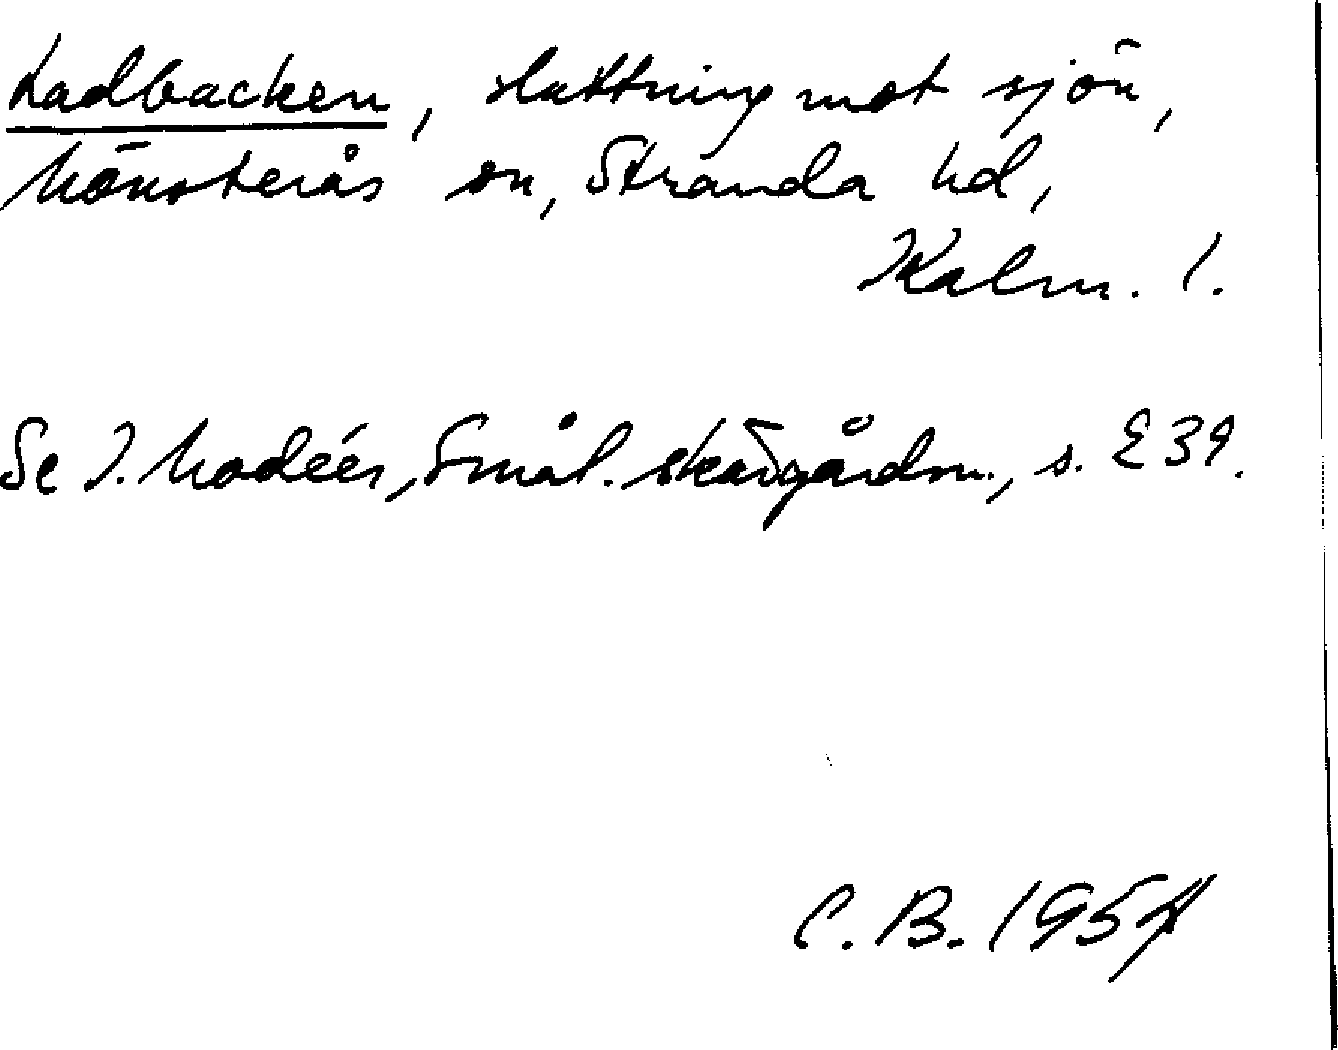 Ladbacken, sluttning mot sjön,
Mönsterås sn, Stranda hd,
Kalm. l.
Se I. Modéer, Smål. skärgårdsn., s. 239.
C. B. 1954